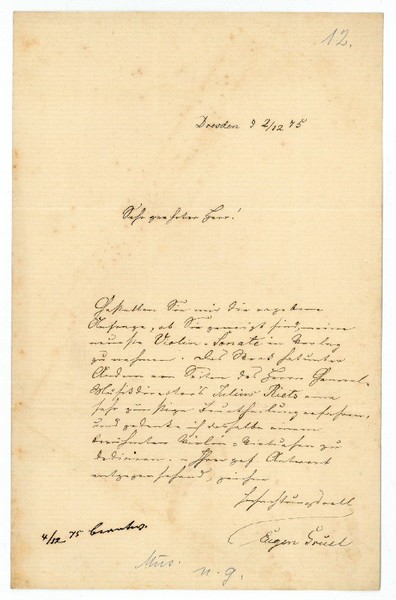 12.
Dresden d 2/12 75
Sehr geehrter Herr!
Gestatten Sie mir die ergebene
Anfrage, ob Sie geneigt sind, meine
neueste Violin-Sonate in Verlag
zu nehmen. Das Werk hat unter
Anderen von Seiten des Herrn General-
Musikdirector's Julius Rietz eine
sehr günstige Beurtheilung erfahren,
und gedenke ich dasselbe einem
berühmten Violin-Virtuosen zu
dediciren. Ihrer gef. Antwort
entgegensehend, zeichne
hochachtungsvoll
Eugen Gruel
4/12 75 beantw.
Mus. n. g.